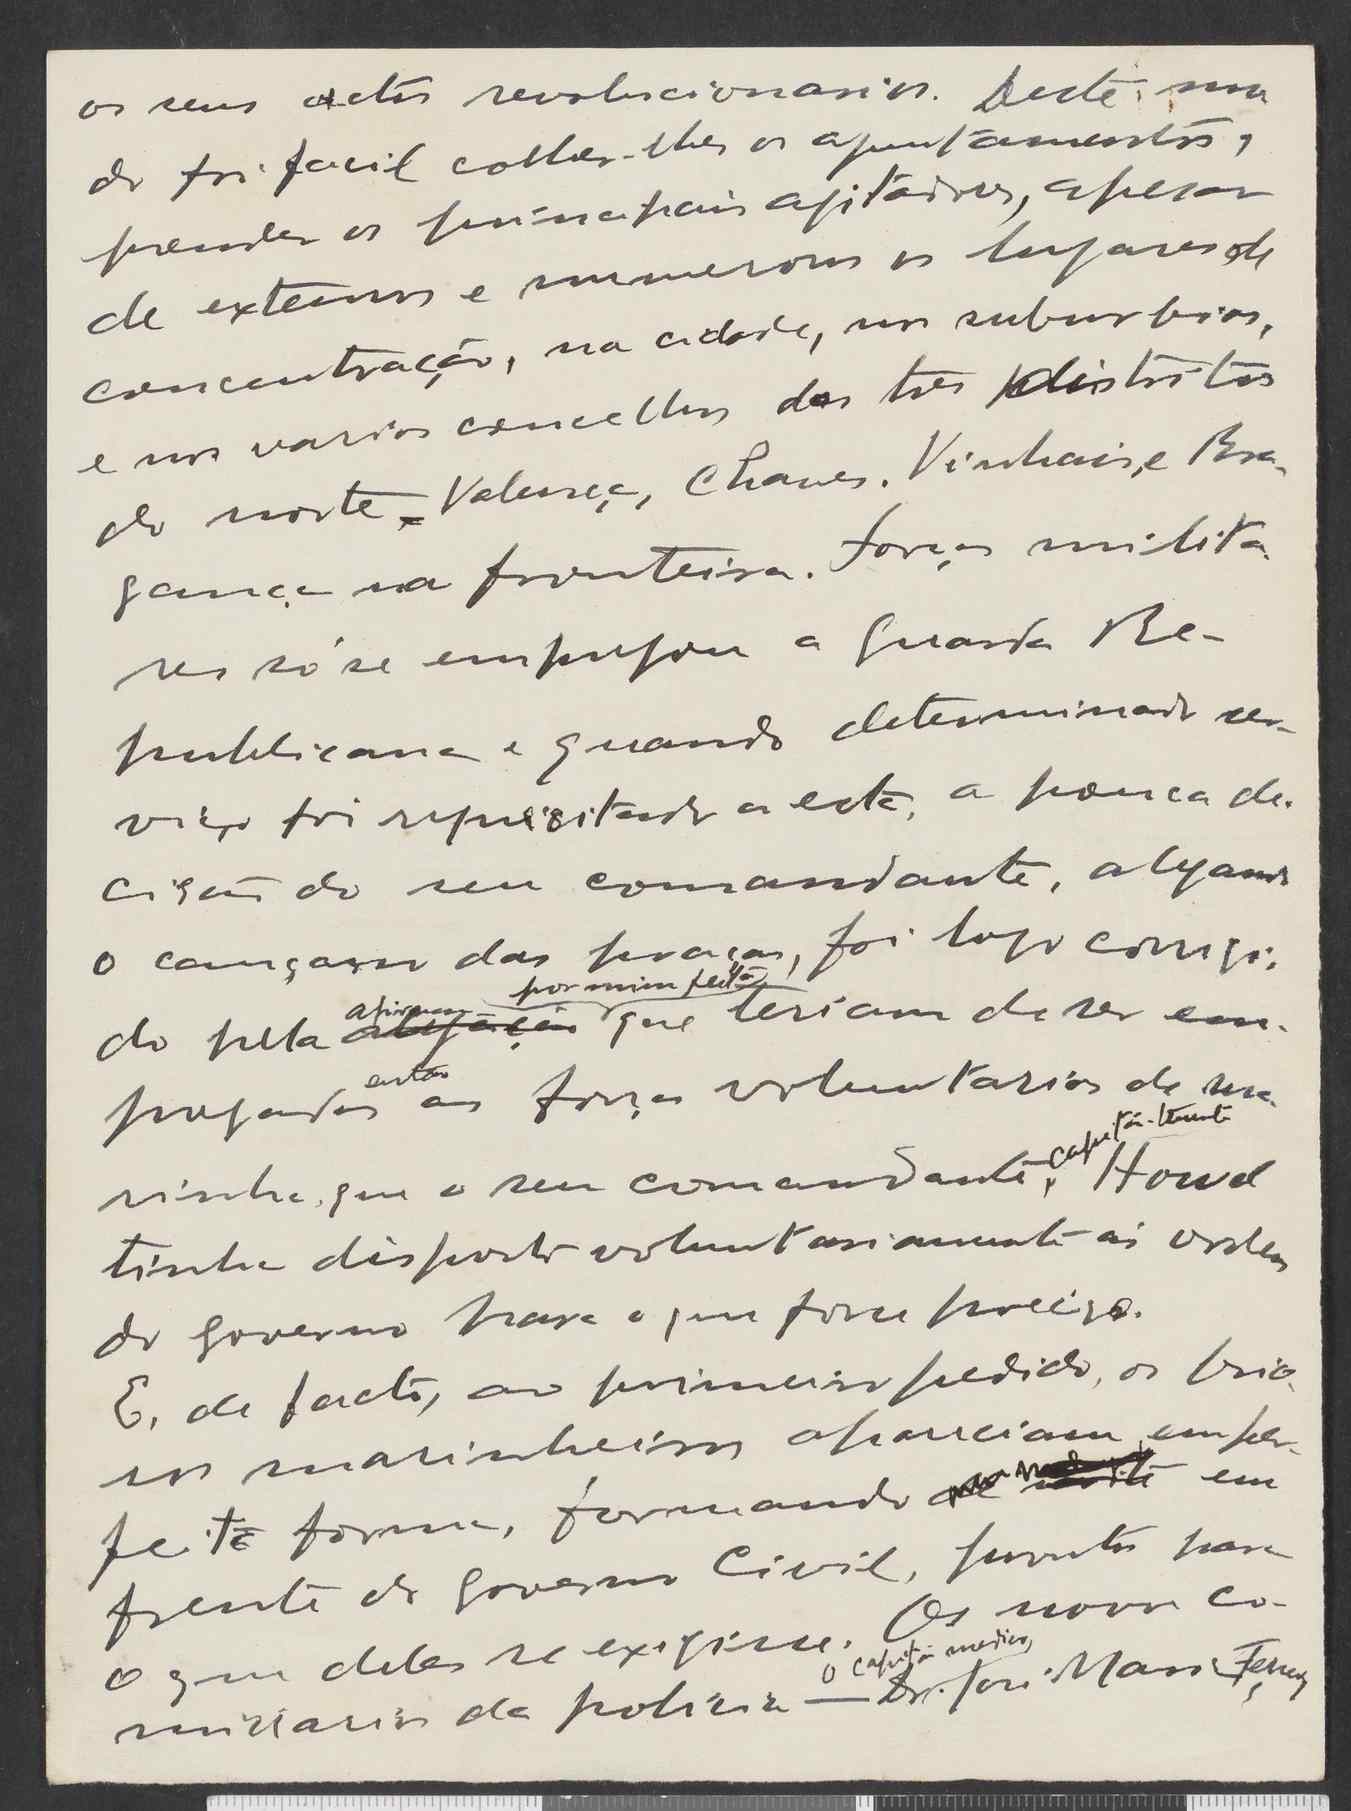 os seus actos revolucionarios. Deste mo
do foi facil colher-lhes os apontamentos,
prender os principais agitadores, apesar
de extensos e numerosos os lugares de
concentração, na cidade, nos suburbios,
e nos varios concelhos dos três distritos
do norte, Valença, Chaves. Vinhais, e Bra-
gança na fronteira. Forças milita-
res só se empregou a Guarda Re-
publicana e quando determinado ser-
viço foi requisitado a esta, a pouca de-
cisão do seu comandante, alegando
o cançasso das praças, foi logo corrigi-
por mim feita
do pela alegação que teriam de ser em-
então
pregadas as forças voluntarios de ma-
capitão-tenente
rinha, que o seu comandante, Howel
tinha disposto voluntariamente ás ordens
do governo para o que fosse preciso.
E, de facto, ao primeiro pedido, os brio-
sos marinheiros apareciam em per-
feita forma, formando em
frente do Governo Civil, prontos para
o que deles se exigisse. Os novos co-
o capitão medico,
missarios da policia — Dr. José Maria Ferrei